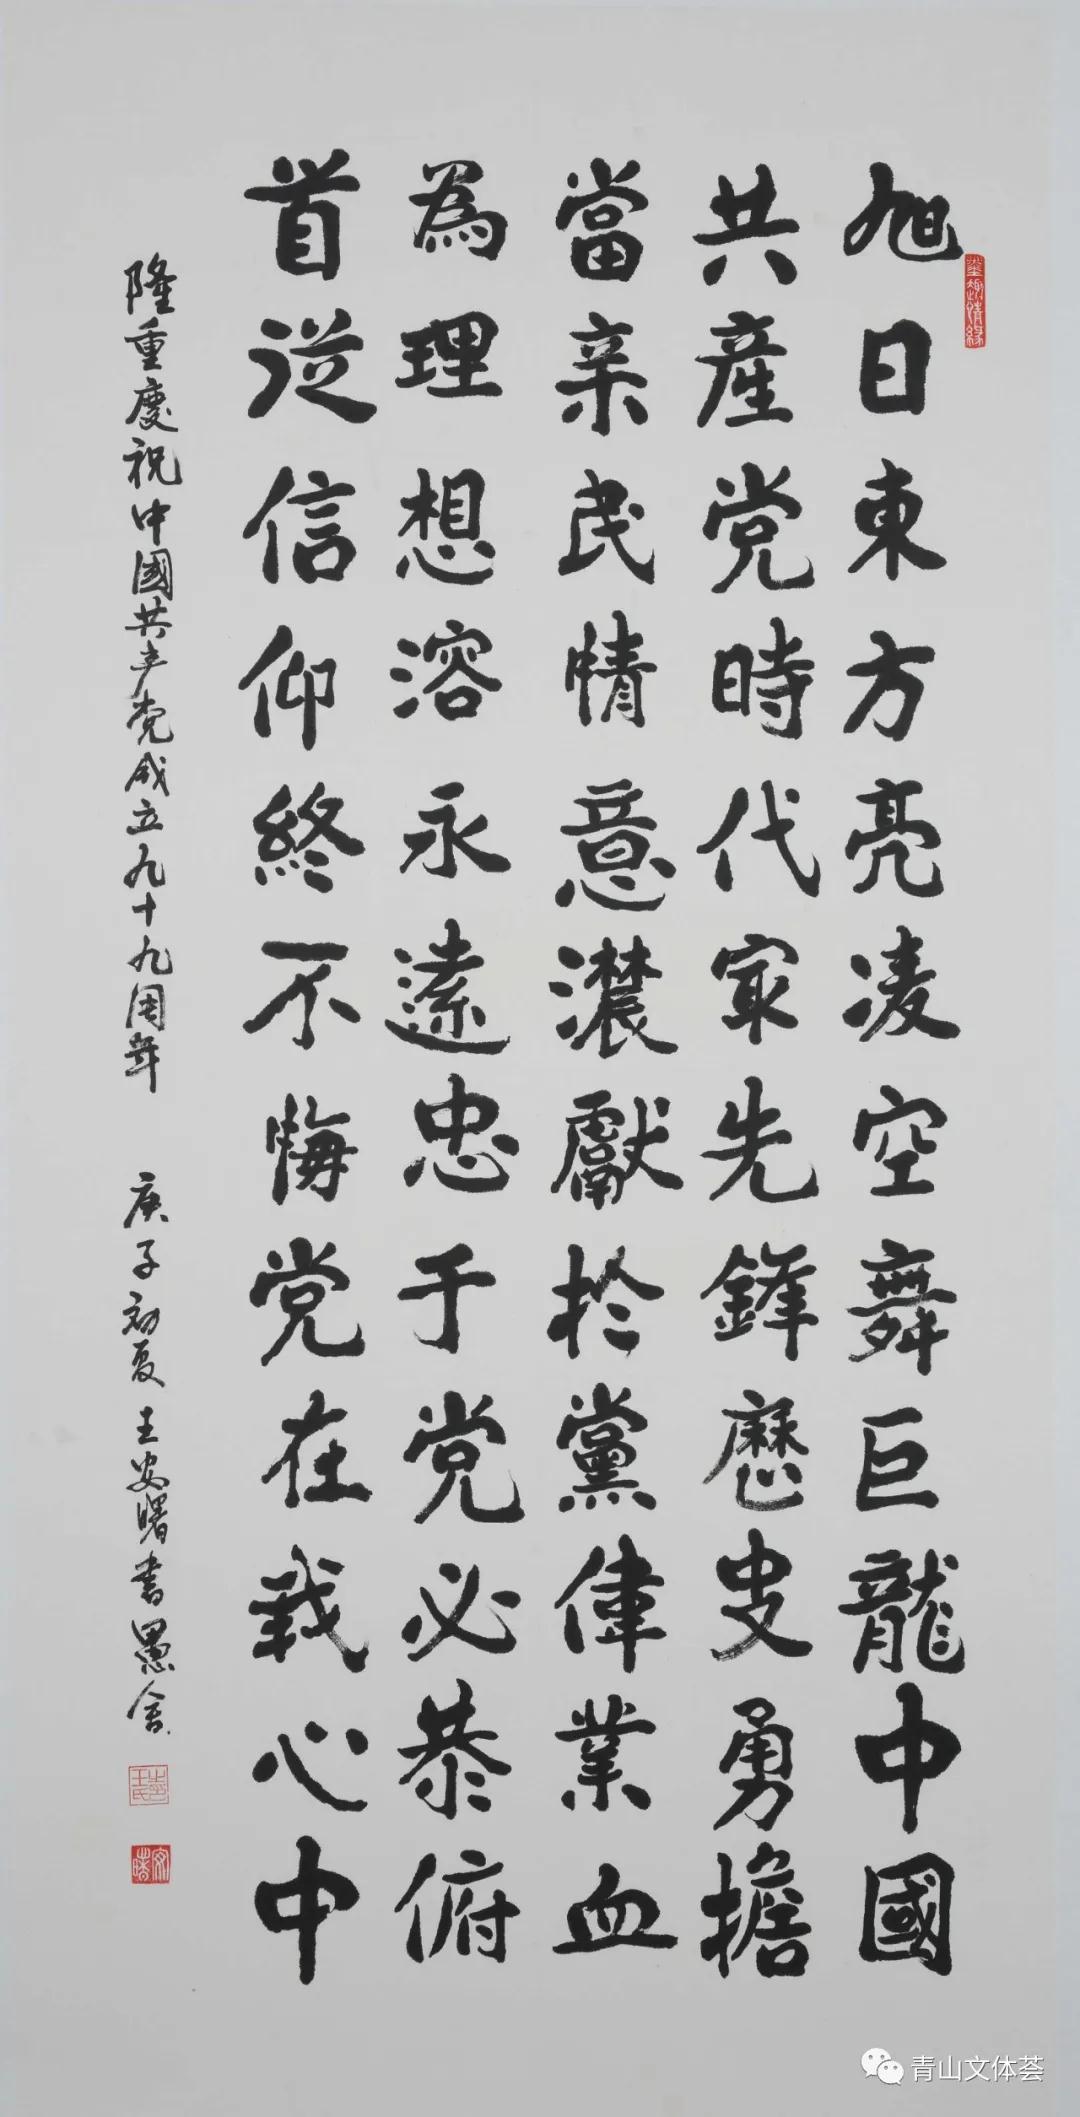 旭日東方亮凌空舞巨龍中國
共産党時代冣先鋒歷史勇擔
當亲民情意濃獻於黨偉業血
為理想溶永遠忠于党必恭俯
首從信仰終不悔党在我心中
隆重慶祝中國共产党成立九十九周年 庚子初夏王安曙書愚舍
青山文体荟